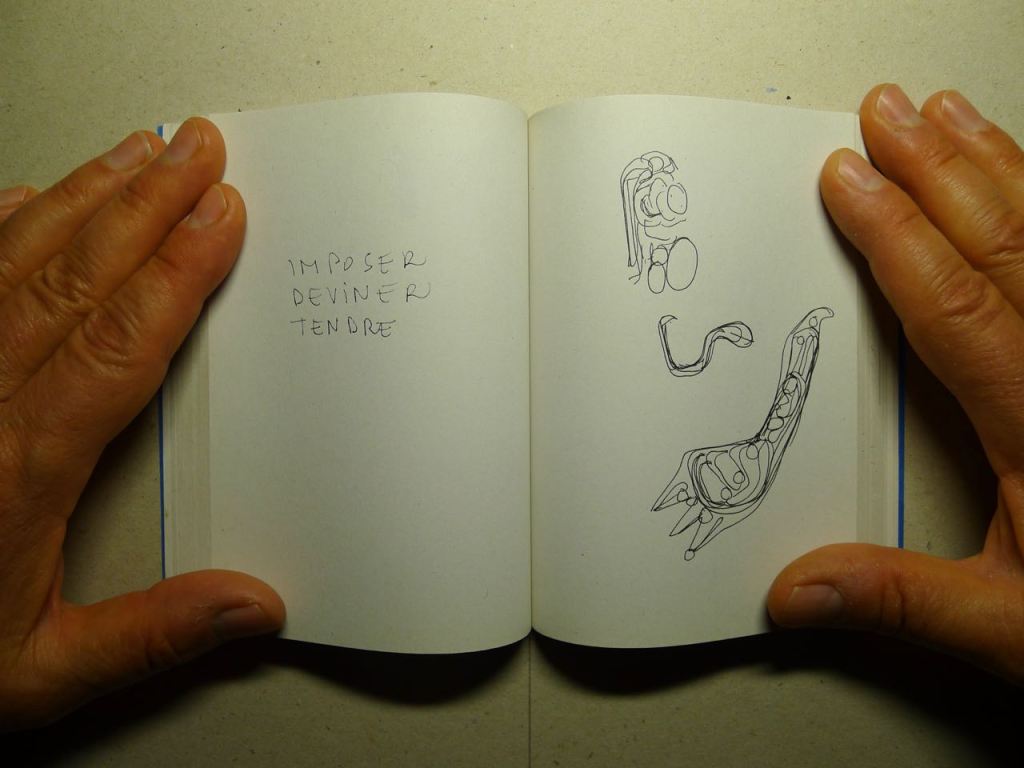 IMPOSER
DEVINER
TENDRE